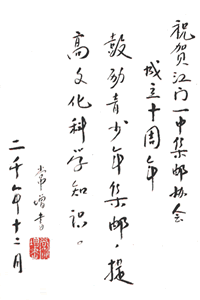 祝贺江门一中集邮协会
成立十周年
鼓励青少年集邮，提
高文化科学知识。
常增书
二千年十二月